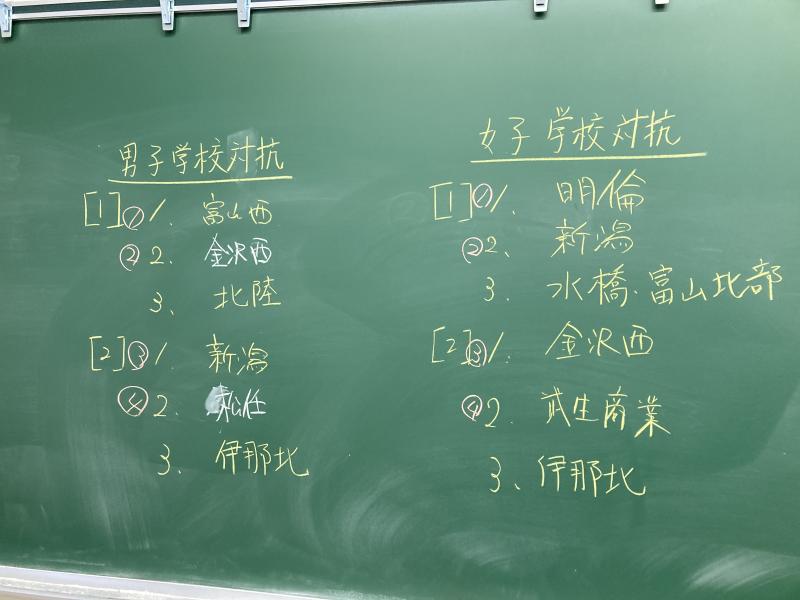 男子学校対抗
[1]① 1. 富山西
② 2. 金沢西
3、北陸
[2]③ 1. 新潟
④ 2. 松任
3、伊那北
女子学校対抗
[1]① 1. 明倫
② 2. 新潟
3. 水橋・富山北部
[2]③ 1. 金沢西
④ 2. 武生商業
3、伊那北